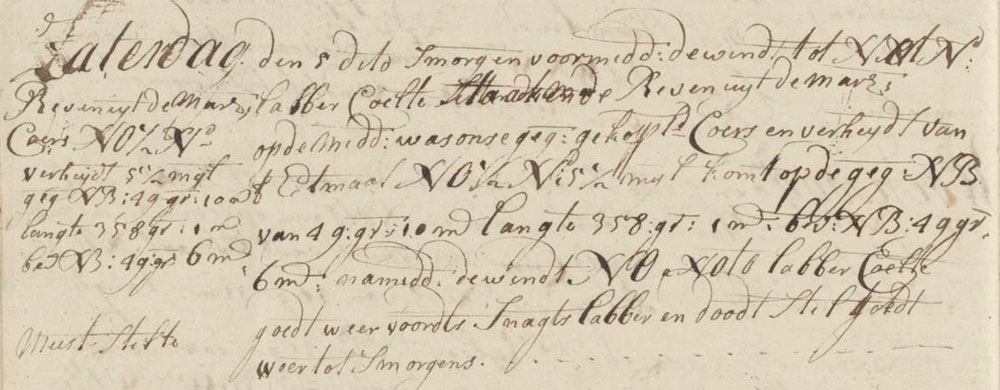 Zaterdag. den 5 dito Smorgen voormidd: de wind tot N.N.O et N:
Reven uyt de Marz: labber Coelte Reven uyt de Marz:
Coers NO½N: op de Midd: was onse geg: gekoppld Coers en verheydt van
verheydt 5½ myl 't Etmaal NO½N: 5½ myl komt op de geg: NB
geg NB: 49 gr: 10 m
langte 358 gr: 1 m van 49: gr: 10 m langte 358: gr: 1 m: bev: NB: 49 gr.
bev NB: 49: gr: 6 m 6 m: namidd: de windt NO a NOtO labber Coelte
goedt weer voordts Snagts labber en doodt Stil goedt
Meest Stilte
weer tot Smorgens.